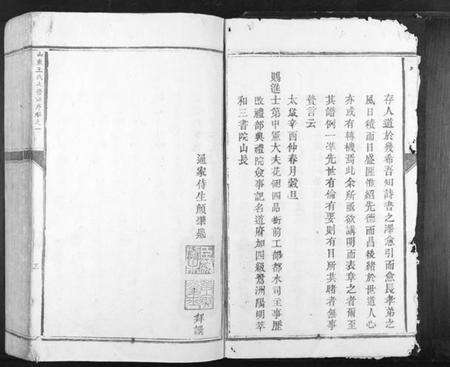 存人道於幾希吾知詩書之澤愈引而愈長孝弟之
風日積而日盛匪惟紹先德而昌後緒於世道人心
亦或有轉機焉此余所亟欲講明而表章之者爾至
其譜例一準先世有倫有要則有目所共睹者無事
贅言云
太歲辛酉仲春月穀旦
賜進士第中憲大夫花翎四品銜前工部都水司主事歷
改禮部典禮院僉事記名道府加四級鷺洲陽明萃
和三書院山長
姻家侍生顏 拜撰